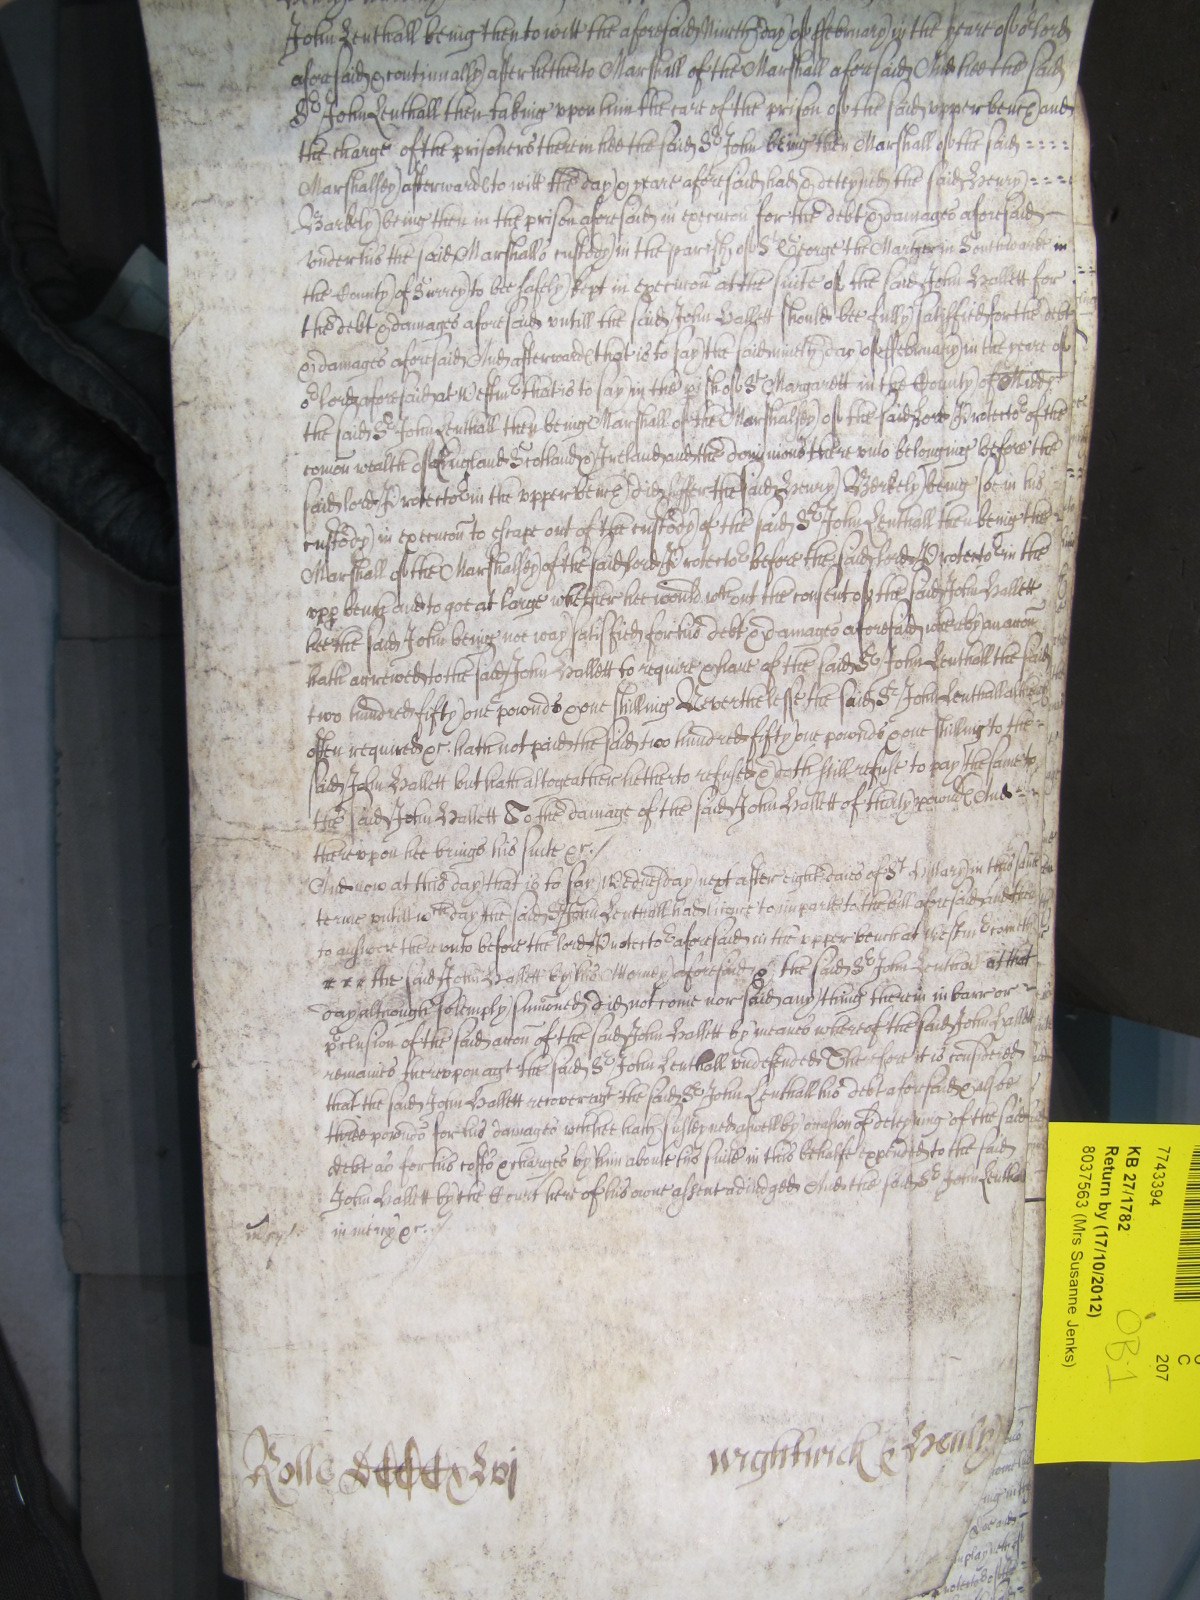 John Lenthall being then to witt the aforesaid Nineth day of ffebruary in the yeare of or lord
aforesaid & continually after hetherto Marshall of the Marshall aforesaid And hee the said
Sr John Lenthall then taking upon him the care of the prison of the said upper bench and
the charge of the prisoners therein hee the said Sr John being then Marshall of the said
Marshalsey afterward to witt the day & yeare aforesaid had & deteyned the said Henry
Barkely being then in the prison aforesaid in execucon for the debt & damages aforesaid
under his the said Marshalls custody in the parish of St George the Martyr in Southwarke in
the County of Surrey to bee safely kept in execucon at the suite of the said John Hallett for
the debt & damages aforesaid untill the said John Hallett should bee fully satisfied for the debt
& damages aforesaid And afterward that is to say the said nineth day of ffebruary in the yeare of
or lord aforesaid at Westmr that is to say in the pish of St Margarett in the County of Midd
the said Sr John Lenthall then being Marshall of the Marshalsey of the said Lord Protector of the
comon wealth of England Scotland & Ireland and the dominions there unto belonging before the
said lord Protector in the upper bench did suffer the said Henry Berkely being soe in his
custody in execucon to escape out of the custody of the said Sr John Lenthall then being the
Marshall of the Marshalsey of the said lord Protector before the said lord Protector in the
upp bench and to goe at large whether hee would wthout the consent of the said John Hallett
hee the said John being noe way satisfied for his debt & damages aforesaid whereby an accon
hath accrewed to the said John Hallett to require & have of the said Sr John Lenthall the said
two hundred fifty one pownds & one shilling Neverthelesse the said Sr John Lenthall although
often required &c. hath not paid the said two hundred fifty one pownds & one shilling to the
said John Hallett but hath altogeather hetherto refused & doth still refuse to pay the same to
the said John Hallett To the damage of the said John Hallett of thirty pownd And
thereupon hee brings his suite &c./
And now at this day that is to say Wednesday next after eight daies of St Hillary in this same
terme untill wch day the said Sr John Lenthall had licence to imparle to the bill aforesaid and then
to answere there unto before the lord Protector aforesaid in the upper bench at Westmr cometh
the said John Hallett by his Attorney aforesaid & the said Sr John Lenthall at that
day although solemply sumoned did not come nor said any thing therein in barr or
pclusion of the said accon of the said John Hallett by meanes whereof the said John Hallett
remaines thereupon agt the said Sr John Lenthall undefended Therefore it is considered
that the said John Hallett recover agt the said Sr John Lenthall his debt aforesaid & alsoe
three pownds for his damages wch hee hath susteyned aswell by occasion of deteyning of the said
debt as for his costs & charges by him about his suite in this behalfe expended to the said
John Hallett by the Court here of his owne assent adiudged And the said Sr John Lenthall
in mercy &c./
Rolle Wightwick & Henly
7743394
KB 27/1782
Return by (17/10/2012)
8037563 (Mrs Susanne Jenks)
C
207
OB·1